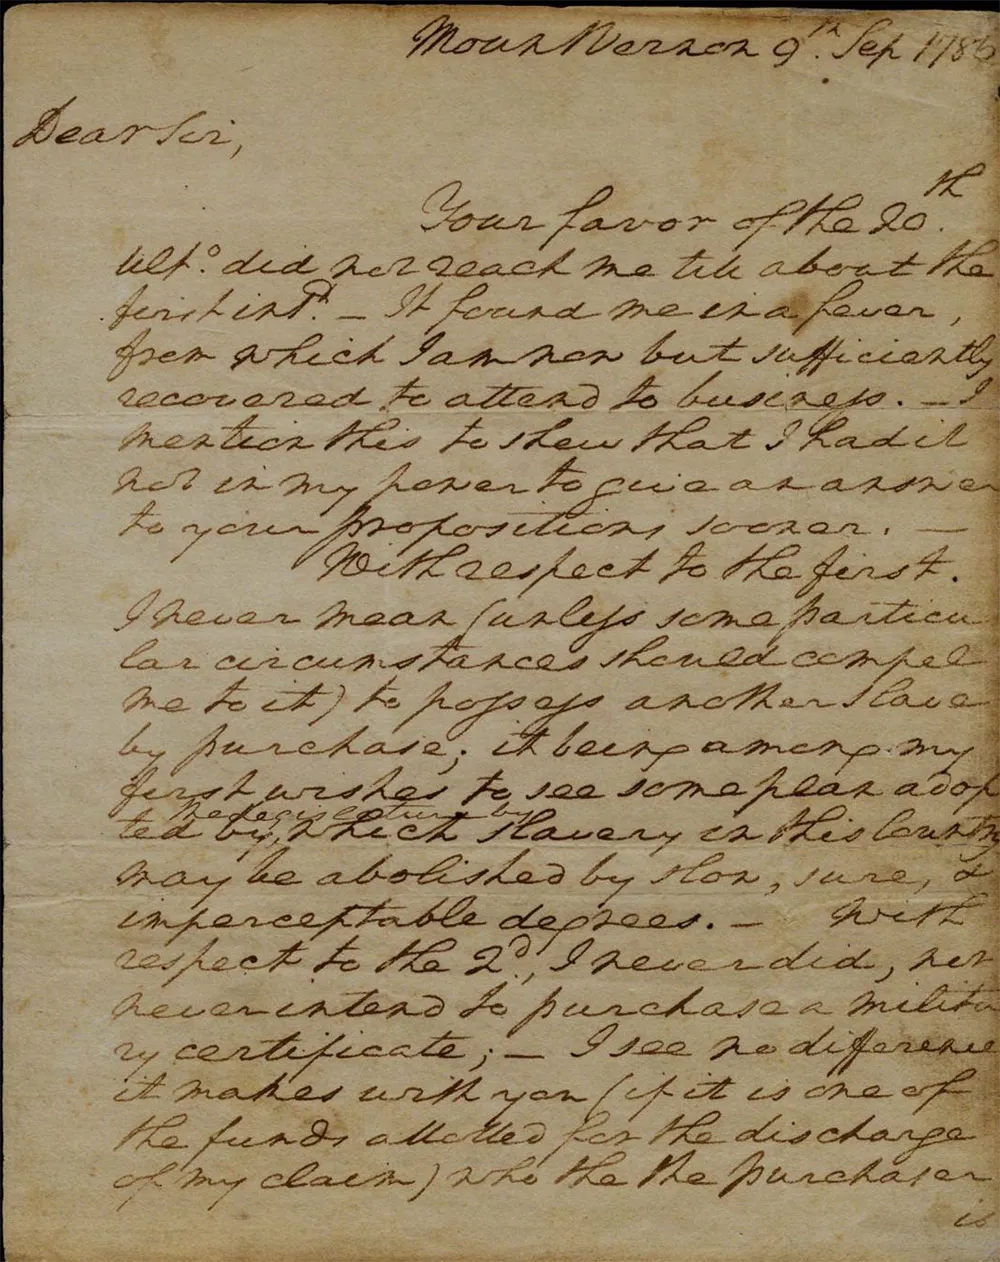 Mount Vernon 9th Sep 1786
Dear Sir,
Your favor of the 20th
Ulto. did not reach me till about the
first inst. – It found me in a fever,
from which I am now but sufficiently
recovered to attend to business. – I
mention this to shew that I had it
not in my power to give an answer
to your propositions sooner. –
With respect to the first.
I never mean (unless some particu
lar circumstances should compel
me to it) to possess another slave
by purchase; it being among my
first wishes to see some plan adop
the Legislature by
ted by, which slavery in this Country
may be abolished by slow, sure, &
imperceptable degrees. – With
respect to the 2d, I never did, nor
never intend to purchase a milita
ry certificate; – I see no difference
it makes with you (if it is one of
the funds allotted for the discharge
of my claim) who the the purchaser
is